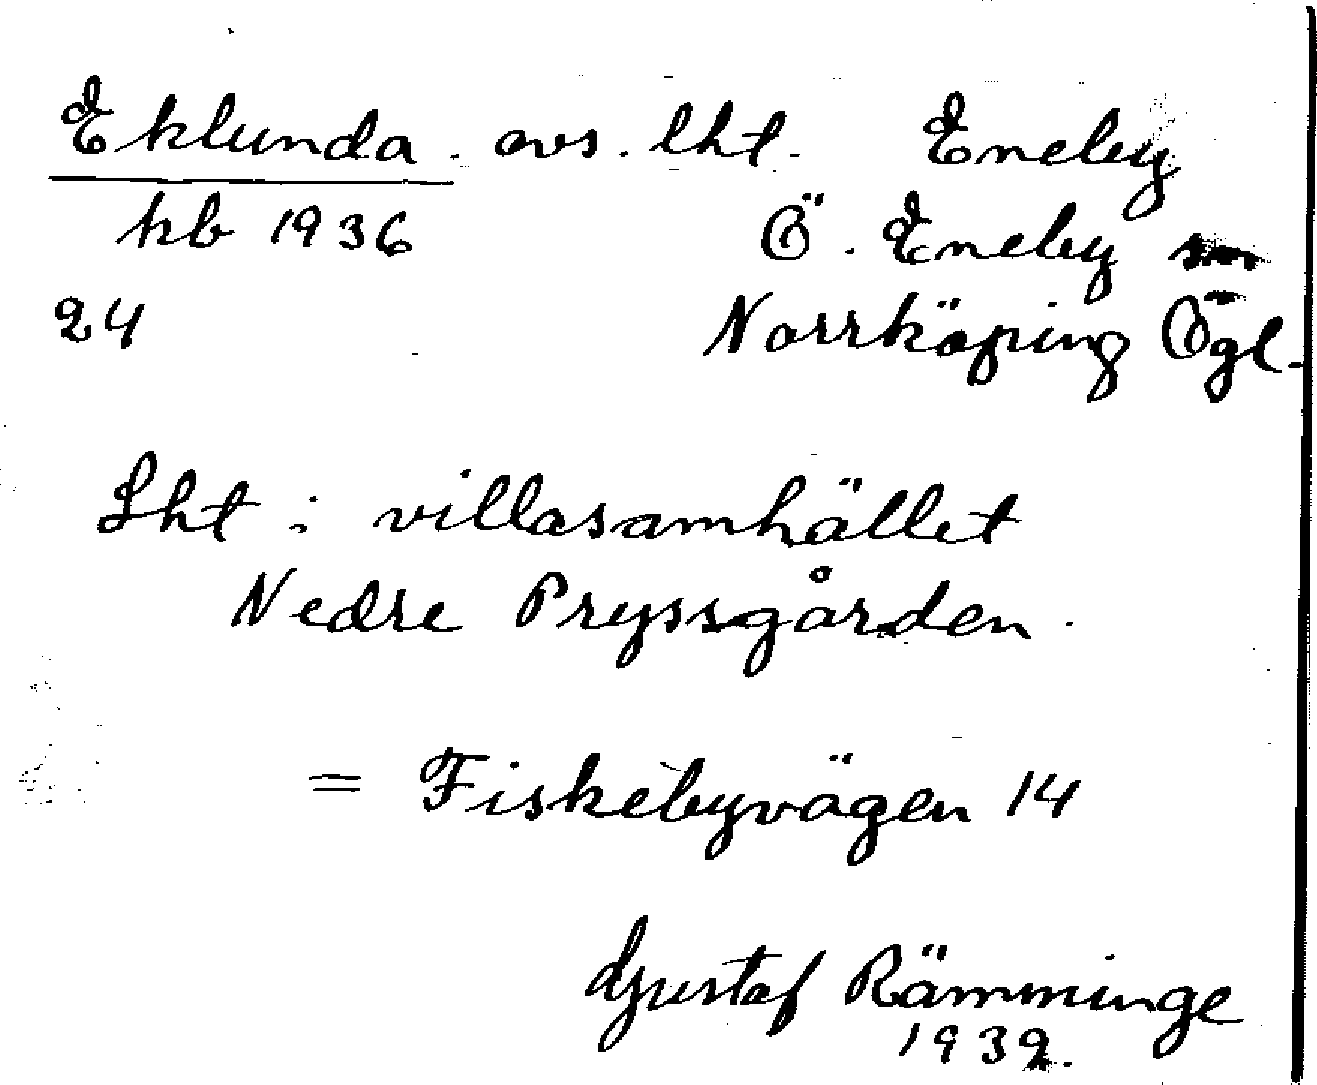 Eklunda. avs. lht. Eneby
kb 1936 Ö. Eneby sn
24 Norrköping Ögl.
Lht i villasamhället
Nedre Pryssgården.
= Fiskebyvägen 14
Gustaf Rämminge
1932.